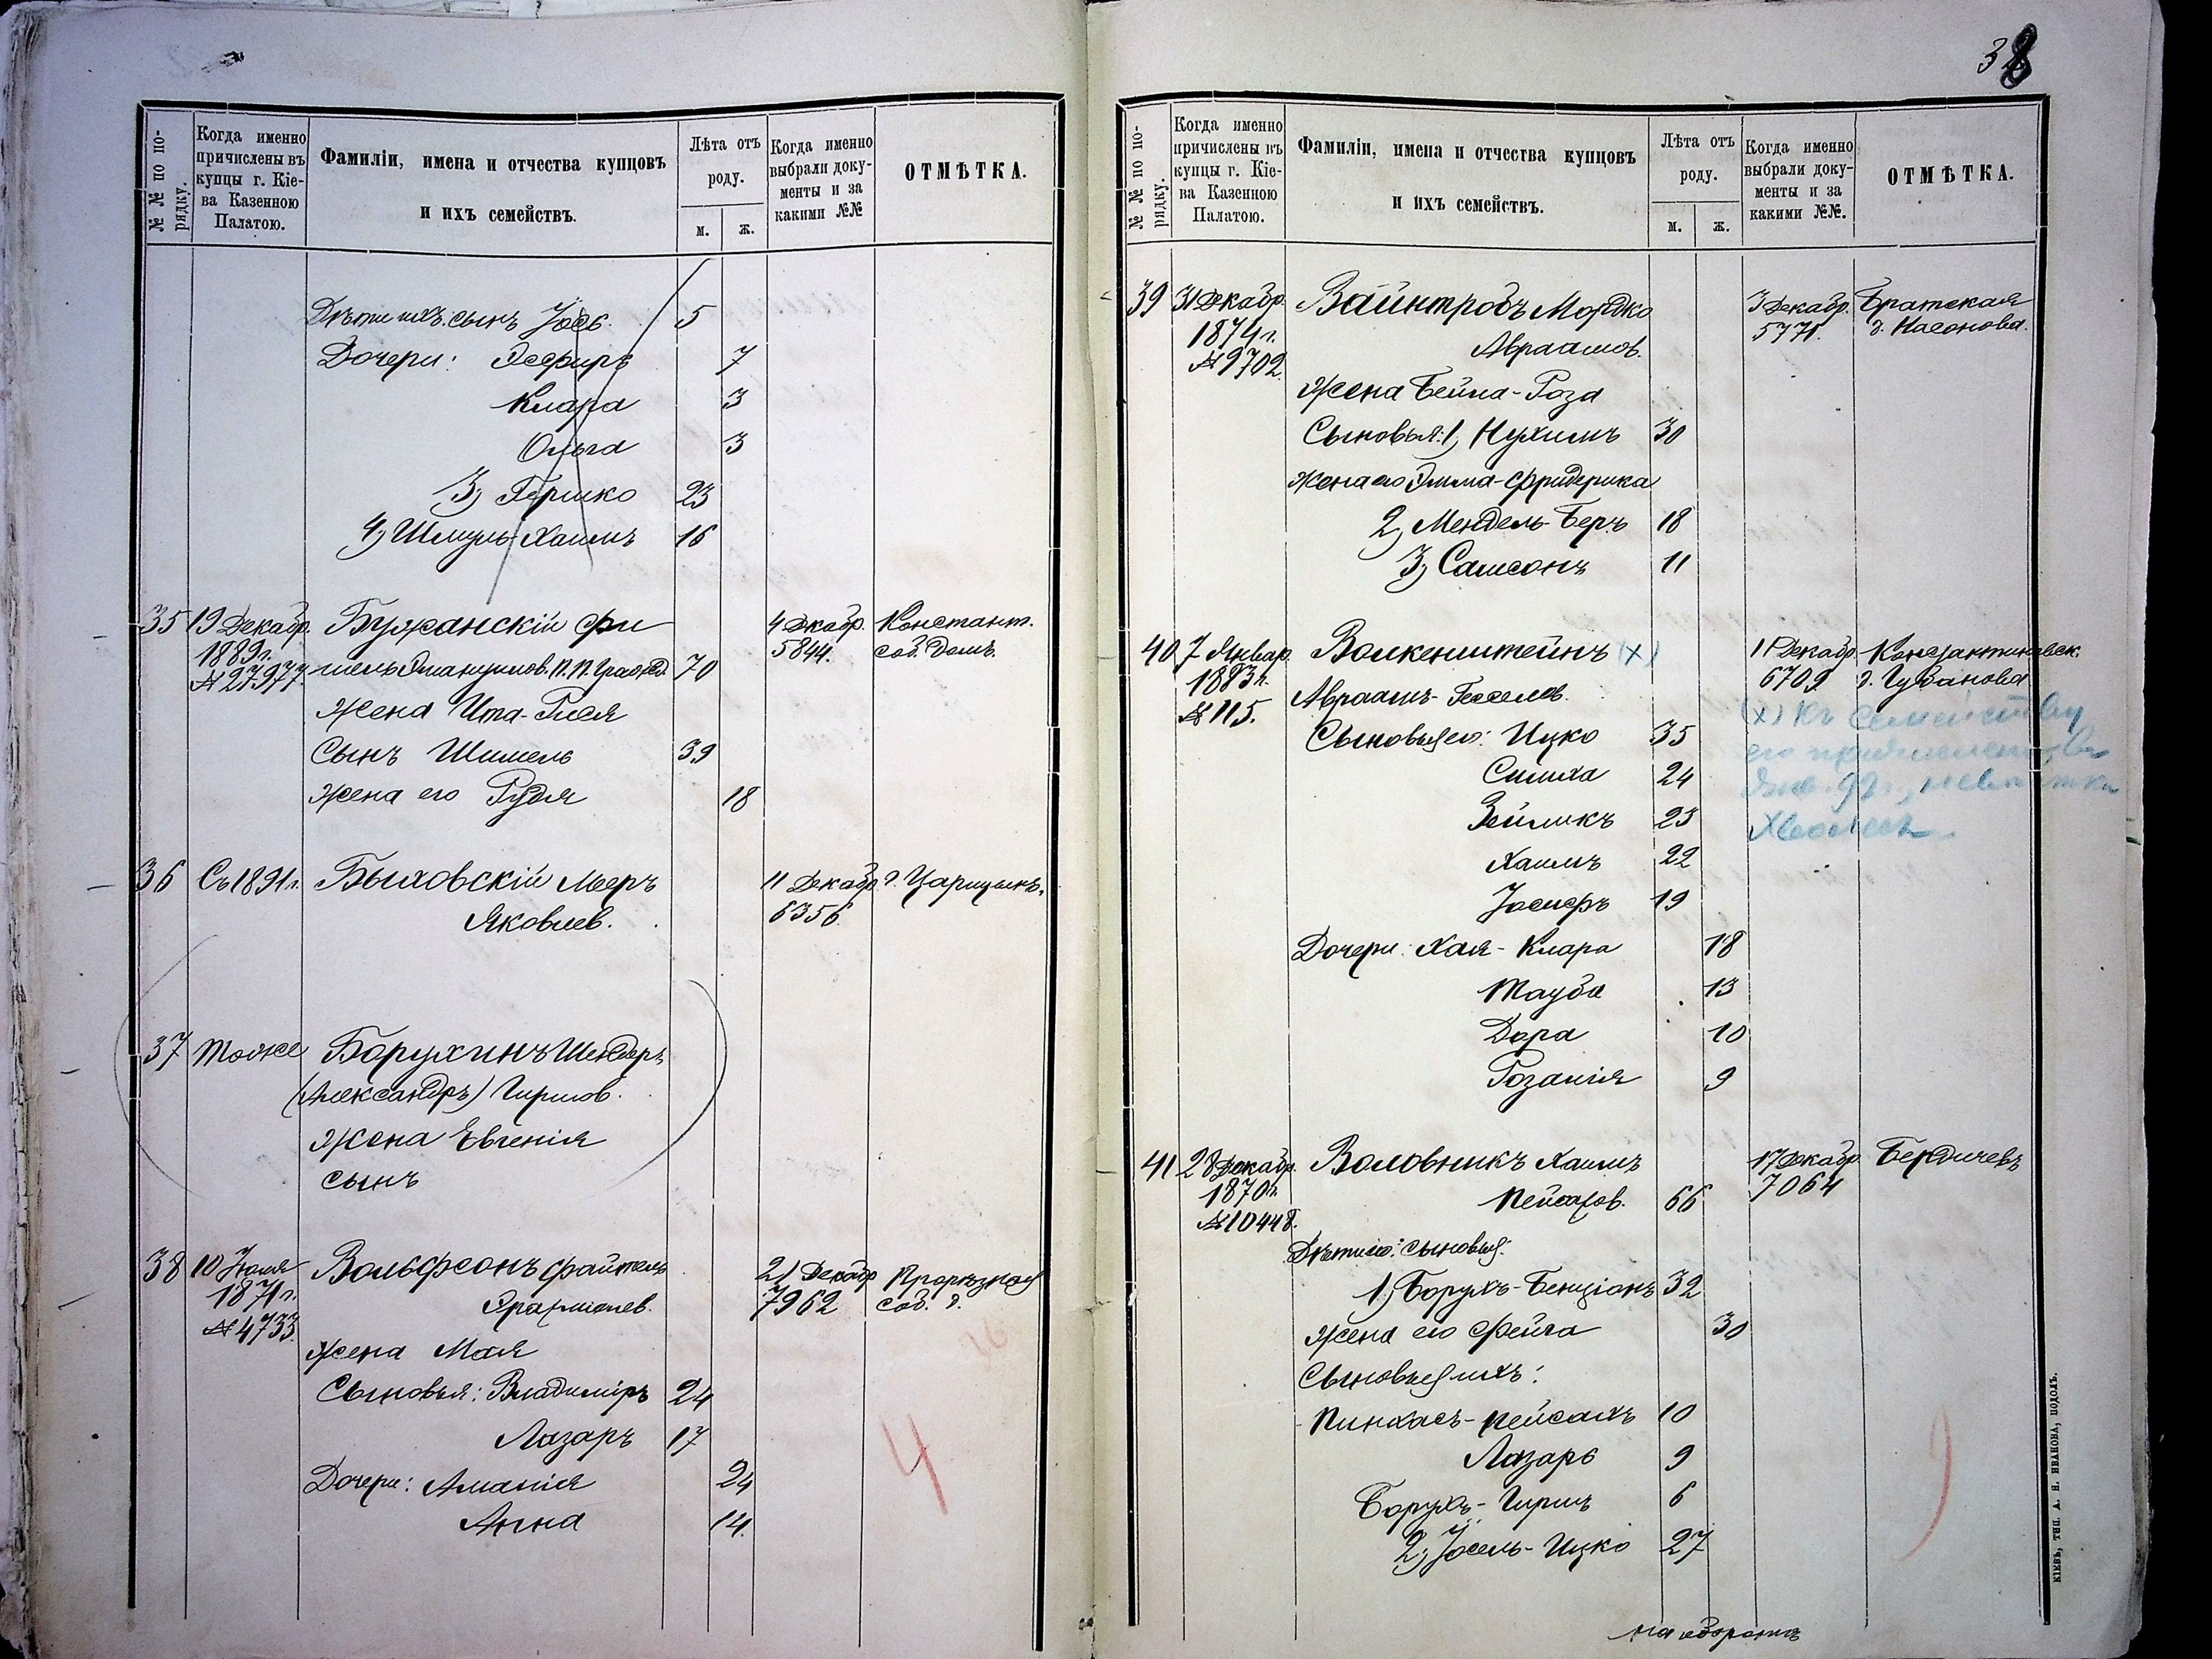 № № по по-
рядку.
Когда именно
причислены въ
купцы г. Кіе-
ва Казенною
Палатою.
Фамиліи, имена и отчества купцовъ
и ихъ семействъ.
Лѣта отъ
роду.
м.
ж.
Когда именно
выбрали доку-
менты и за
какими №№
ОТМѢТКА.
Дѣти ихъ: сынъ Іось. 5
Дочери: Эсфирь 7
Клара 3
Ольга 3
3) Гершко 23
4) Шмуль-Хаимъ 16
35 19 Декабр. Бужанскій Фи 4 Декабр. Констант.
1889 г. 5844. соб. домъ.
№ 27977. шель Эмануилов. П. П. Гражд. 70
Жена Ита-Глея
Сынъ Шимель 39
Жена его Рудя 18
36 Съ 1891 г. Быховскій Меръ 11 Декабр. г. Царицынъ.
Яковлев. 6356
37 Тоже Борухинъ Шендеръ
(Александръ) Гиршов.
Жена Евгенія
сынъ
38 10 Іюля Вольфсонъ Файтель 21 Декабр Прорѣзная
1871 г. Ярахміилев. 7962 соб. д.
№ 4733.
Жена Мая
Сыновья: Владиміръ 24
Лазарь 17
Дочери: Амалія 24
Анна 14.
4
38
№ № по по-
рядку.
Когда именно
причислены въ
купцы г. Кіе-
ва Казенною
Палатою.
Фамиліи, имена и отчества купцовъ
и ихъ семействъ.
Лѣта отъ
роду.
м.
ж.
Когда именно
выбрали доку-
менты и за
какими №№.
ОТМѢТКА.
39 31 Декабр. Вайнтробъ Мордко 3 Декабр. Братская
1874 г. Авраамов. 5771. д. Насонова.
№ 9702.
Жена Бейла-Роза
Сыновья: 1) Нухимъ 30
Жена его Эмма-Фридерика
2) Мендель-Беръ 18
3) Самсонъ 11
40 7 Январ. Волкенштейнъ (х) 11 Декабр. Константиновск.
1883 г. Авраамъ-Гесселев. 6709 д. Чубанова
№ 115. (х) Къ семейству
Сыновья его: Ицко 35
Симха 24
Зейликъ 23
Хаимъ 22
Іосифъ 19
Дочери: Хая-Клара 18
Тауба 13
Дора 10
Розалія 9
41 28 Декабр. Воловникъ Хаимъ 17 Декабр. Бердичевъ
1870 г. Пейсахов. 66 7064
№ 10448.
Дѣти его: сыновья:
1) Борухъ-Бенціонъ 32
Жена его Фейга 30
Сыновья ихъ:
Пинхасъ-Пейсахъ 10
Лазарь 9
Борухъ-Гиршъ 6
2) Іосель-Ицко 27
на оборотѣ
КІЕВЪ, ТИП. А. Н. ИВАНОВА, ПОДОЛЪ.